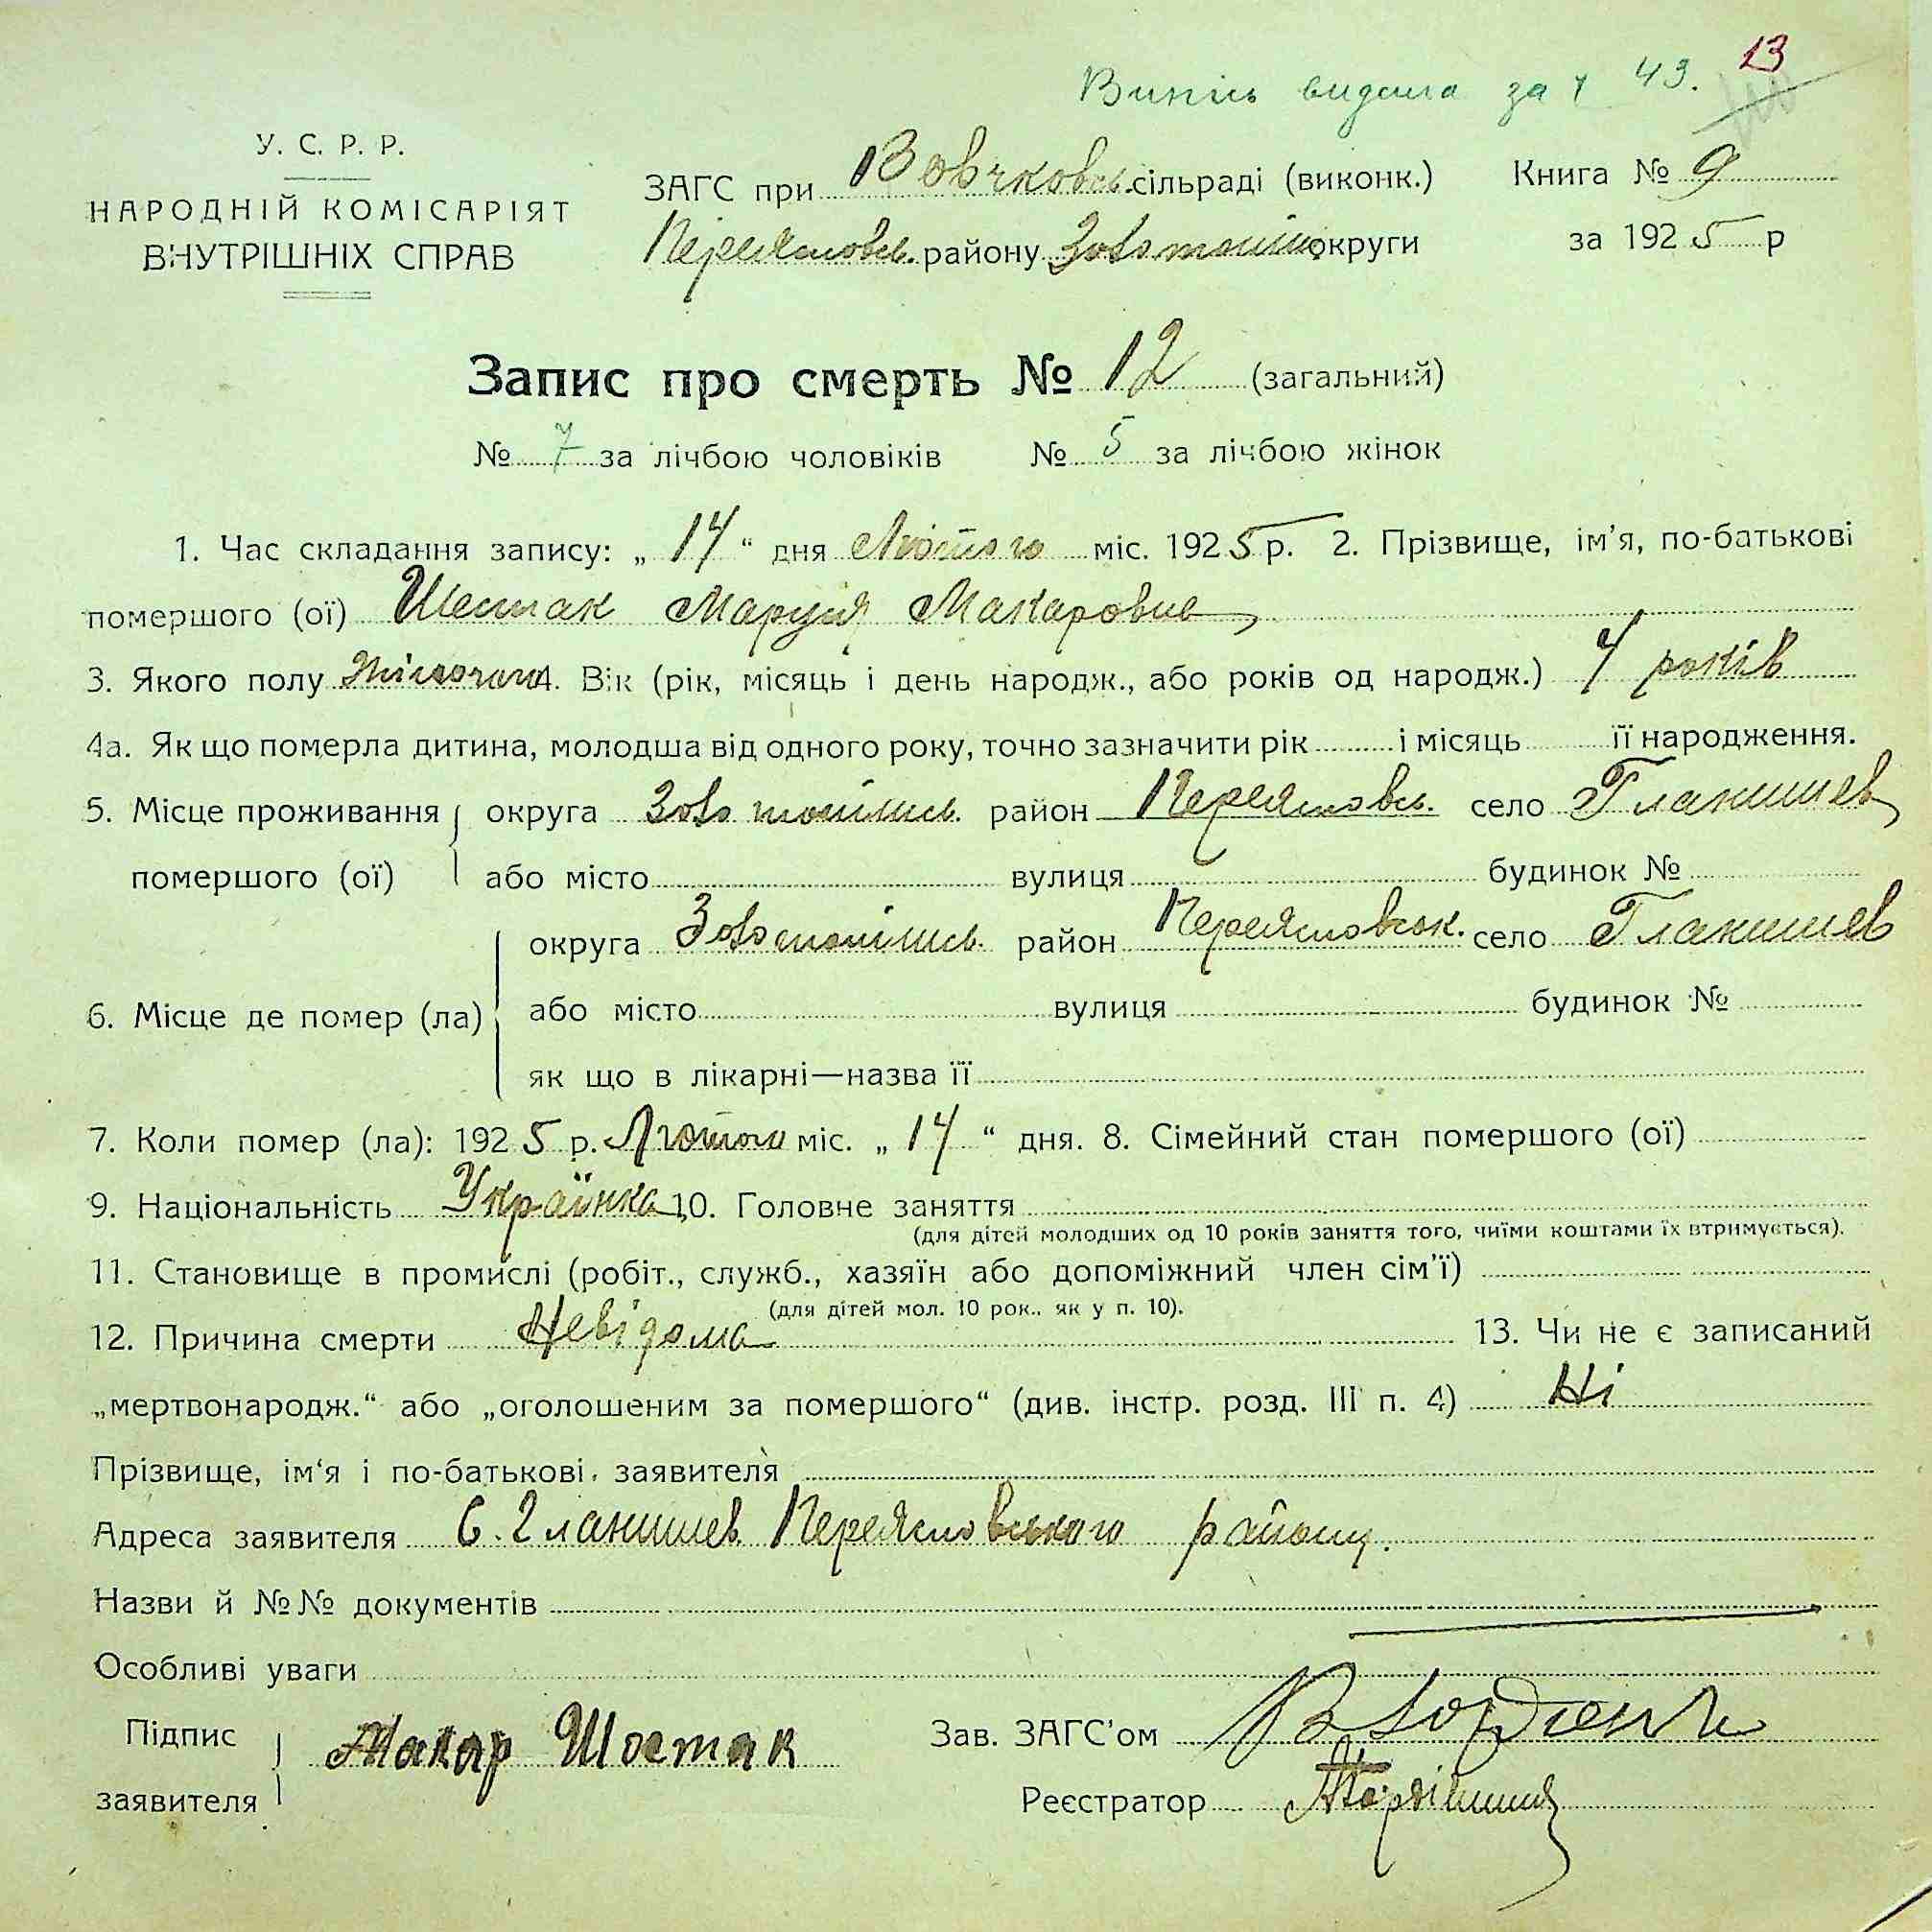 Випись видала за № 43. 13
У. С. Р. Р.
НАРОДНІЙ КОМІСАРІЯТ
ВНУТРІШНІХ СПРАВ
ЗАГС при Вовчковсь. сільраді (виконк.) Книга № 9
Переясловсь. району Золотоніш. округи за 1925 р
Запис про смерть № 12 (загальний)
№ 7 за лічбою чоловіків № 5 за лічбою жінок
1. Час складання запису: „14“ дня Лютого міс. 1925 р. 2. Прізвище, ім’я, по-батькові
помершого (ої) Шестак Маруся Макаровне
3. Якого полу Жіночого 4. Вік (рік, місяць і день народж., або років од народж.) 4 років
4а. Як що померла дитина, молодша від одного року, точно зазначити рік і місяць її народження.
5. Місце проживання помершого (ої) округа Золотонішсь. район Переясловсь. село Гланишев
або місто вулиця будинок №
6. Місце де помер (ла) округа Золотонішсь. район Переясловськ. село Гланишев
або місто вулиця будинок №
як що в лікарні—назва її
7. Коли помер (ла): 1925 р. Лютого міс. „14“ дня. 8. Сімейний стан помершого (ої)
9. Національність Українка 10. Головне заняття
(для дітей молодших од 10 років заняття того, чиїми коштами їх втримується).
11. Становище в промислі (робіт., служб., хазяїн або допоміжний член сім’ї)
(для дітей мол. 10 рок., як у п. 10).
12. Причина смерти Невідома 13. Чи не є записаний
„мертвонародж.“ або „оголошеним за помершого“ (див. інстр. розд. III п. 4) Ні
Прізвище, ім‘я і по-батькові заявителя
Адреса заявителя С. Гланишев Переясловського району.
Назви й №№ документів
Особливі уваги
Підпис заявителя Макар Шостак Зав. ЗАГС’ом
Реєстратор